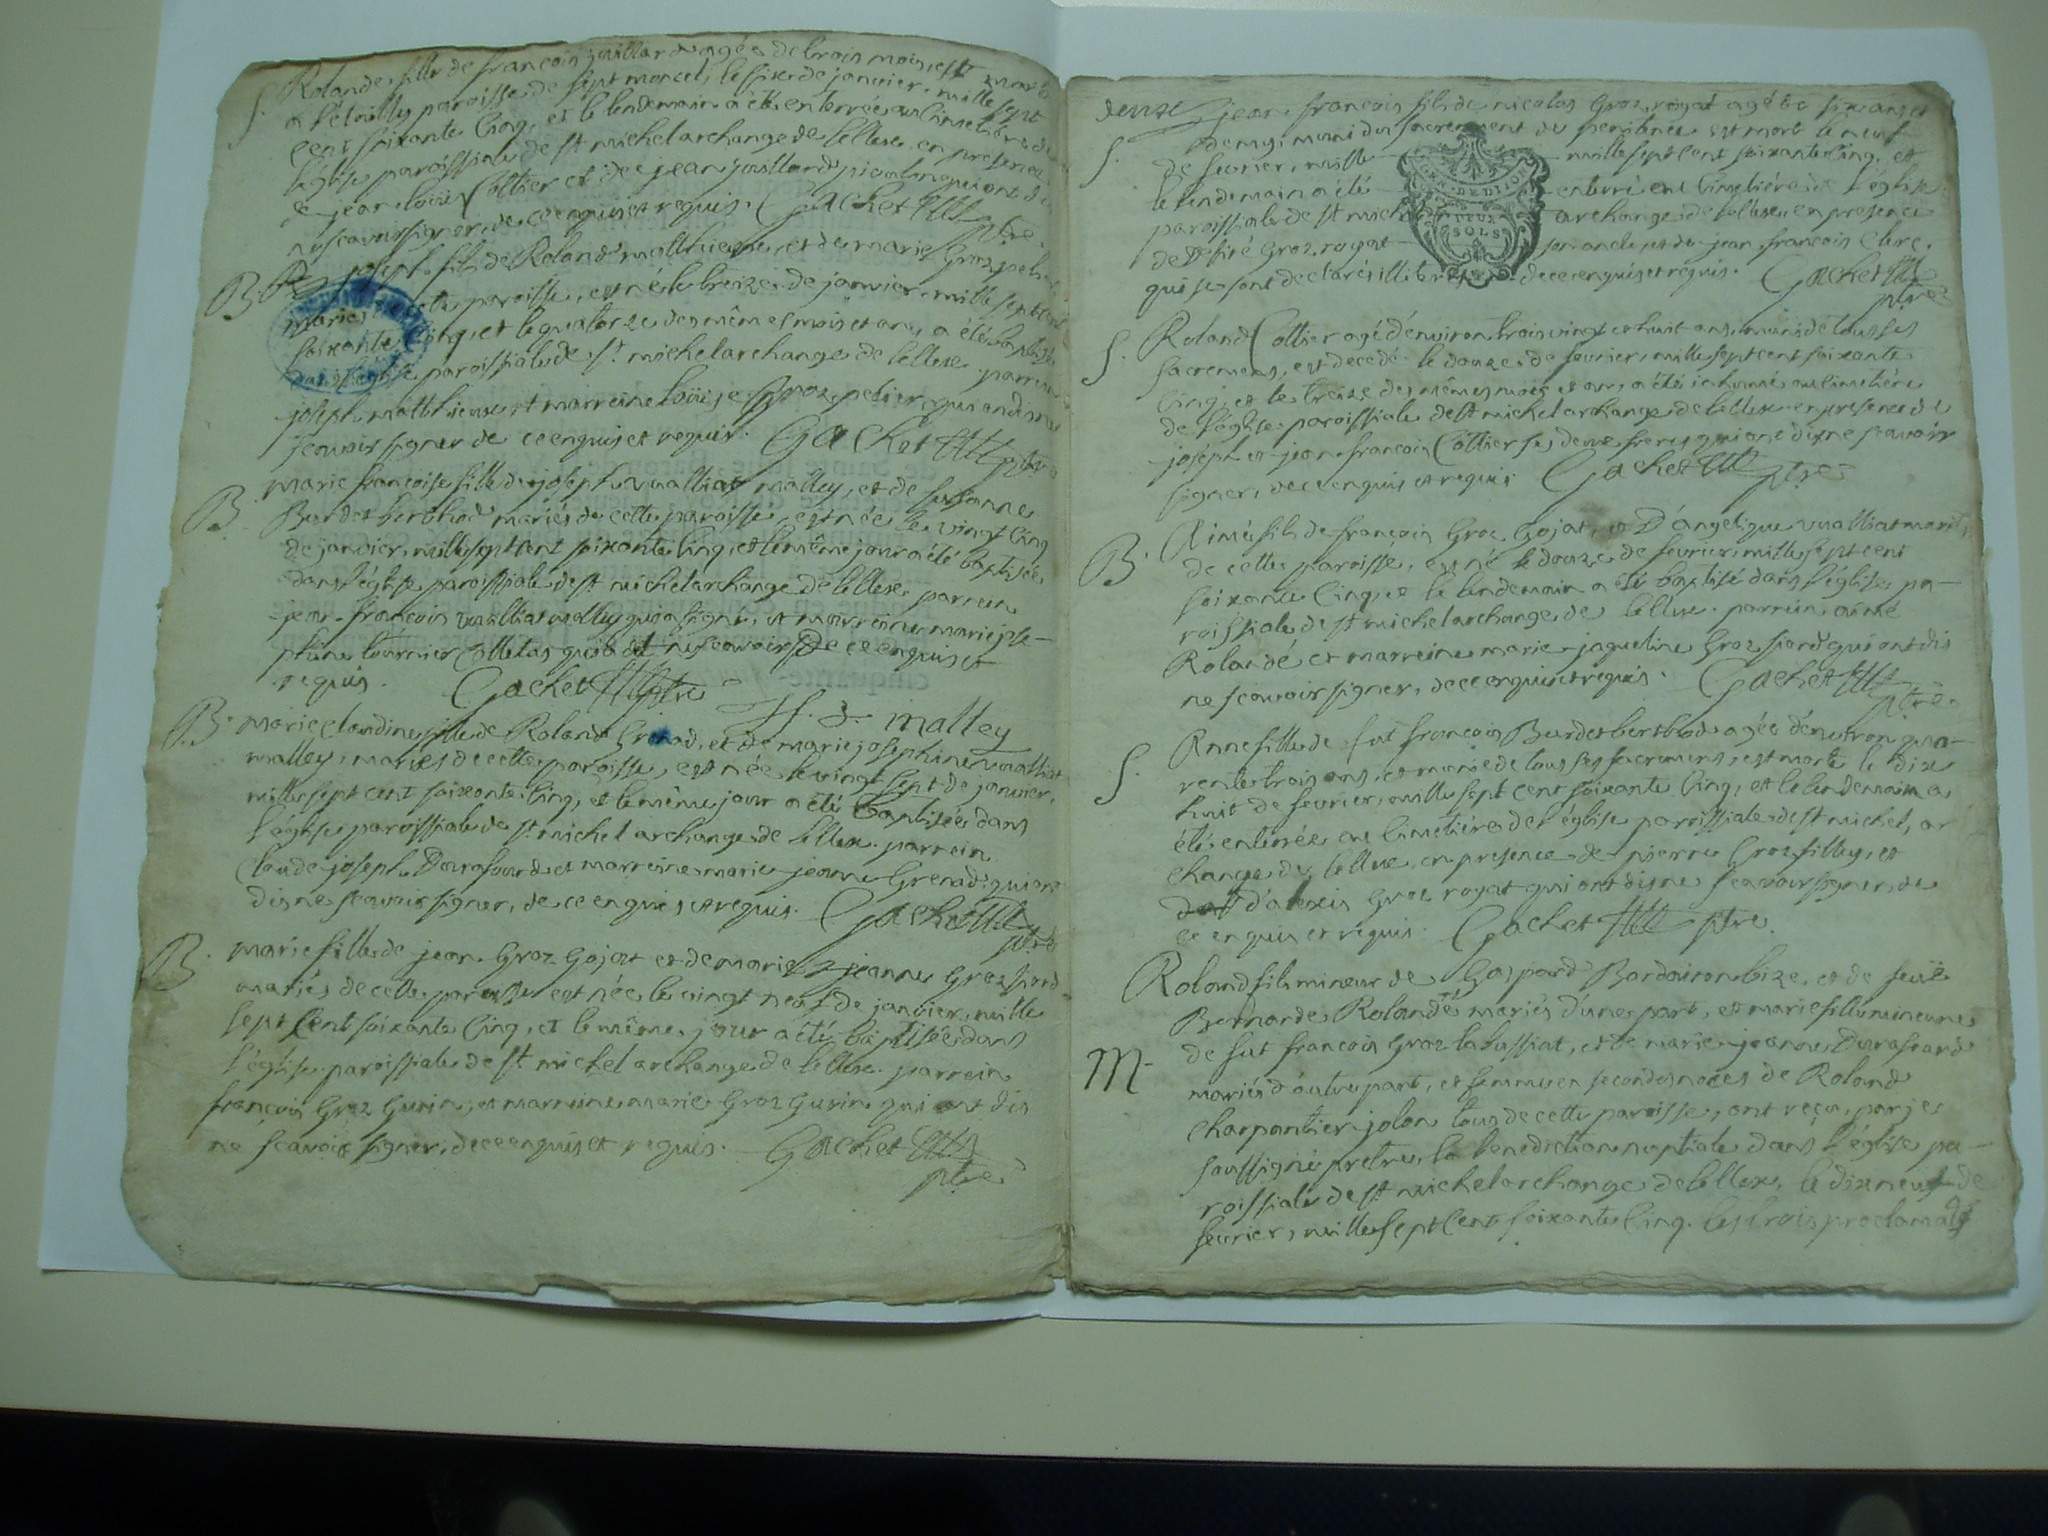 S. Rolande fille de françois juillard agée de trois mois est morte
a l'étoilly paroisse de sept moncel, le six de janvier, mille sept
cent soixante cinq, et le lendemain a été enterrée au cimetière de
l'église paroissiale de st michel archange de lellex, en presence
de jean loüis Cottier et de jean juillard qui ont dit
ne scavoir signer, de ce enquis et requis. Gachet ptre
B joseph fils de Roland matthieux, et de marie Groz
mariés paroisse, est né le treize de janvier, mille sept cent
soixante cinq, et le quatorze des mêmes mois et an, a été baptisé
dans l'église paroissiale de st michel archange de lellex. parrein
joseph matthieux et marreine loüise Groz pelier, qui ont dit ne
scavoir signer de ce enquis et requis. Gachet ptre
B. marie françoise fille de joseph vualliat malley, et de susanne
Burdet berthod mariés de cette paroisse, est née le vingt cinq
de janvier, mille sept cent soixante cinq, et le même jour a été baptisée
dans l'église paroissiale de st michel archange de lellex. parrein
jean françois vualliat malley qui a signé, et marreine marie jose-
phine tournier Colletas qui a dit ne scavoir de ce enquis et
requis. Gachet ptre
J. f. malley
B. marie Claudine fille de Roland Grenad, et de marie josephine vualliat
malley, mariés de cette paroisse, est née le vingt sept de janvier,
mille sept cent soixante cinq, et le même jour a été baptisée dans
l'église paroissiale de st michel archange de lellex. parrein
Claude joseph Durafourd et marreine marie jeanne Grenad qui ont
dit ne scavoir signer, de ce enquis et requis. Gachet ptre
B. marie fille de jean Groz Gojat et de marie jeanne Groz piard
mariés de cette paroisse est née le vingt neuf de janvier, mille
sept Cent soixante Cinq, et le même jour a été baptisée dans
l'église paroissiale de st michel archange de lellex. parrein
françois Groz Gurin, et marreine marie Groz Gurin qui ont dit
ne scavoir signer, de ce enquis et requis. Gachet
ptre
deuxe jean françois fils de nicolas Groz royat agé de six ans et
S. demy, muni du sacrement de penitence est mort le neuf
de fevrier, mille mille sept cent soixante cinq, et
le lendemain a été enterré au Cimetière de l'église
paroissiale de st mich archange de lellex, en presence
de Desiré Groz royat son oncle, et de jean françois Clerc,
qui se sont declarés illitérés de ce enquis et requis. Gachet
ptre
GEN. DE DIJON
DEUX
SOLS
S. Roland Cottier agé d'environ trois vingt et huit ans, muni de tous ses
sacremens, est decedé le douze de fevrier, mille sept cent soixante
cinq, et le treize des mêmes mois et an, a été inhumé au cimetière
de l'église paroissiale de st michel archange de lellex en presence de
joseph et jean françois Cottier ses deux freres qui ont dit ne scavoir
signer, de ce enquis et requis. Gachet ptre
B. Aimé fils de françois Groz Gojat, et D'angelique vualliat mariés
de cette paroisse, est né le douze de fevrier, mille sept cent
soixante Cinq, et le lendemain a été baptisé dans l'église pa-
roissiale de st michel archange de lellex. parrein aimé
Rolandé et marreine marie jaqueline Groz piard qui ont dit
ne scavoir signer, de ce enquis et requis. Gachet
ptre.
S. Anne fille de fut françois Burdet berthod agée d'environ qua-
rente trois ans, et munie de tous ses sacremens, est morte le dix
huit de fevrier, mille sept cent soixante Cinq, et le lendemain a
été enterrée au Cimetière de l'église paroissiale de st michel, ar
change de lellex, en presence de pierre Groz filley, et
d'alexis Groz royat qui ont dit ne scavoir signer, de
ce enquis et requis. Gachet ptre.
Roland fils mineur de Gaspard Bordairon bize, et de feuë
Bernarde Rolandé mariés d'une part, et marie fille mineure
M. de fut françois Groz labassiat, et de marie jeanne Durafourd
mariés d'autre part, et femme en secondes noces de Roland
Charpantier jolon tous de cette paroisse, ont reçu, par je
soussigné pretre, la benediction nuptiale dans l'église pa-
roissiale de st michel archange de lellex, le dix neuf de
fevrier, mille sept Cent soixante Cinq. les trois proclamats